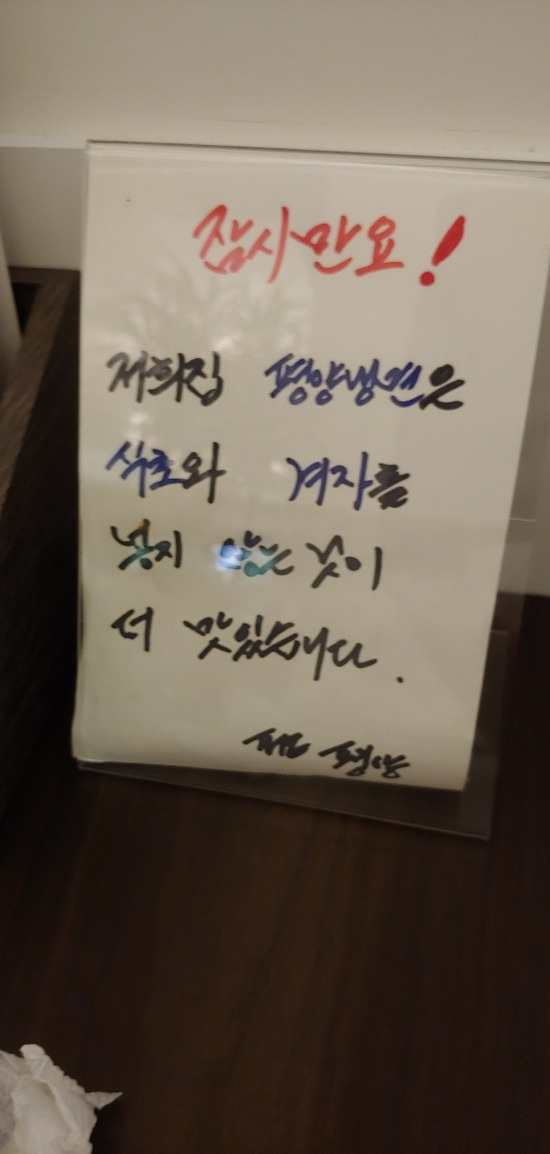 잠시만요!
저희집 평양냉면은
식초와 겨자를
넣지 않는 것이
더 맛있습니다.
평양